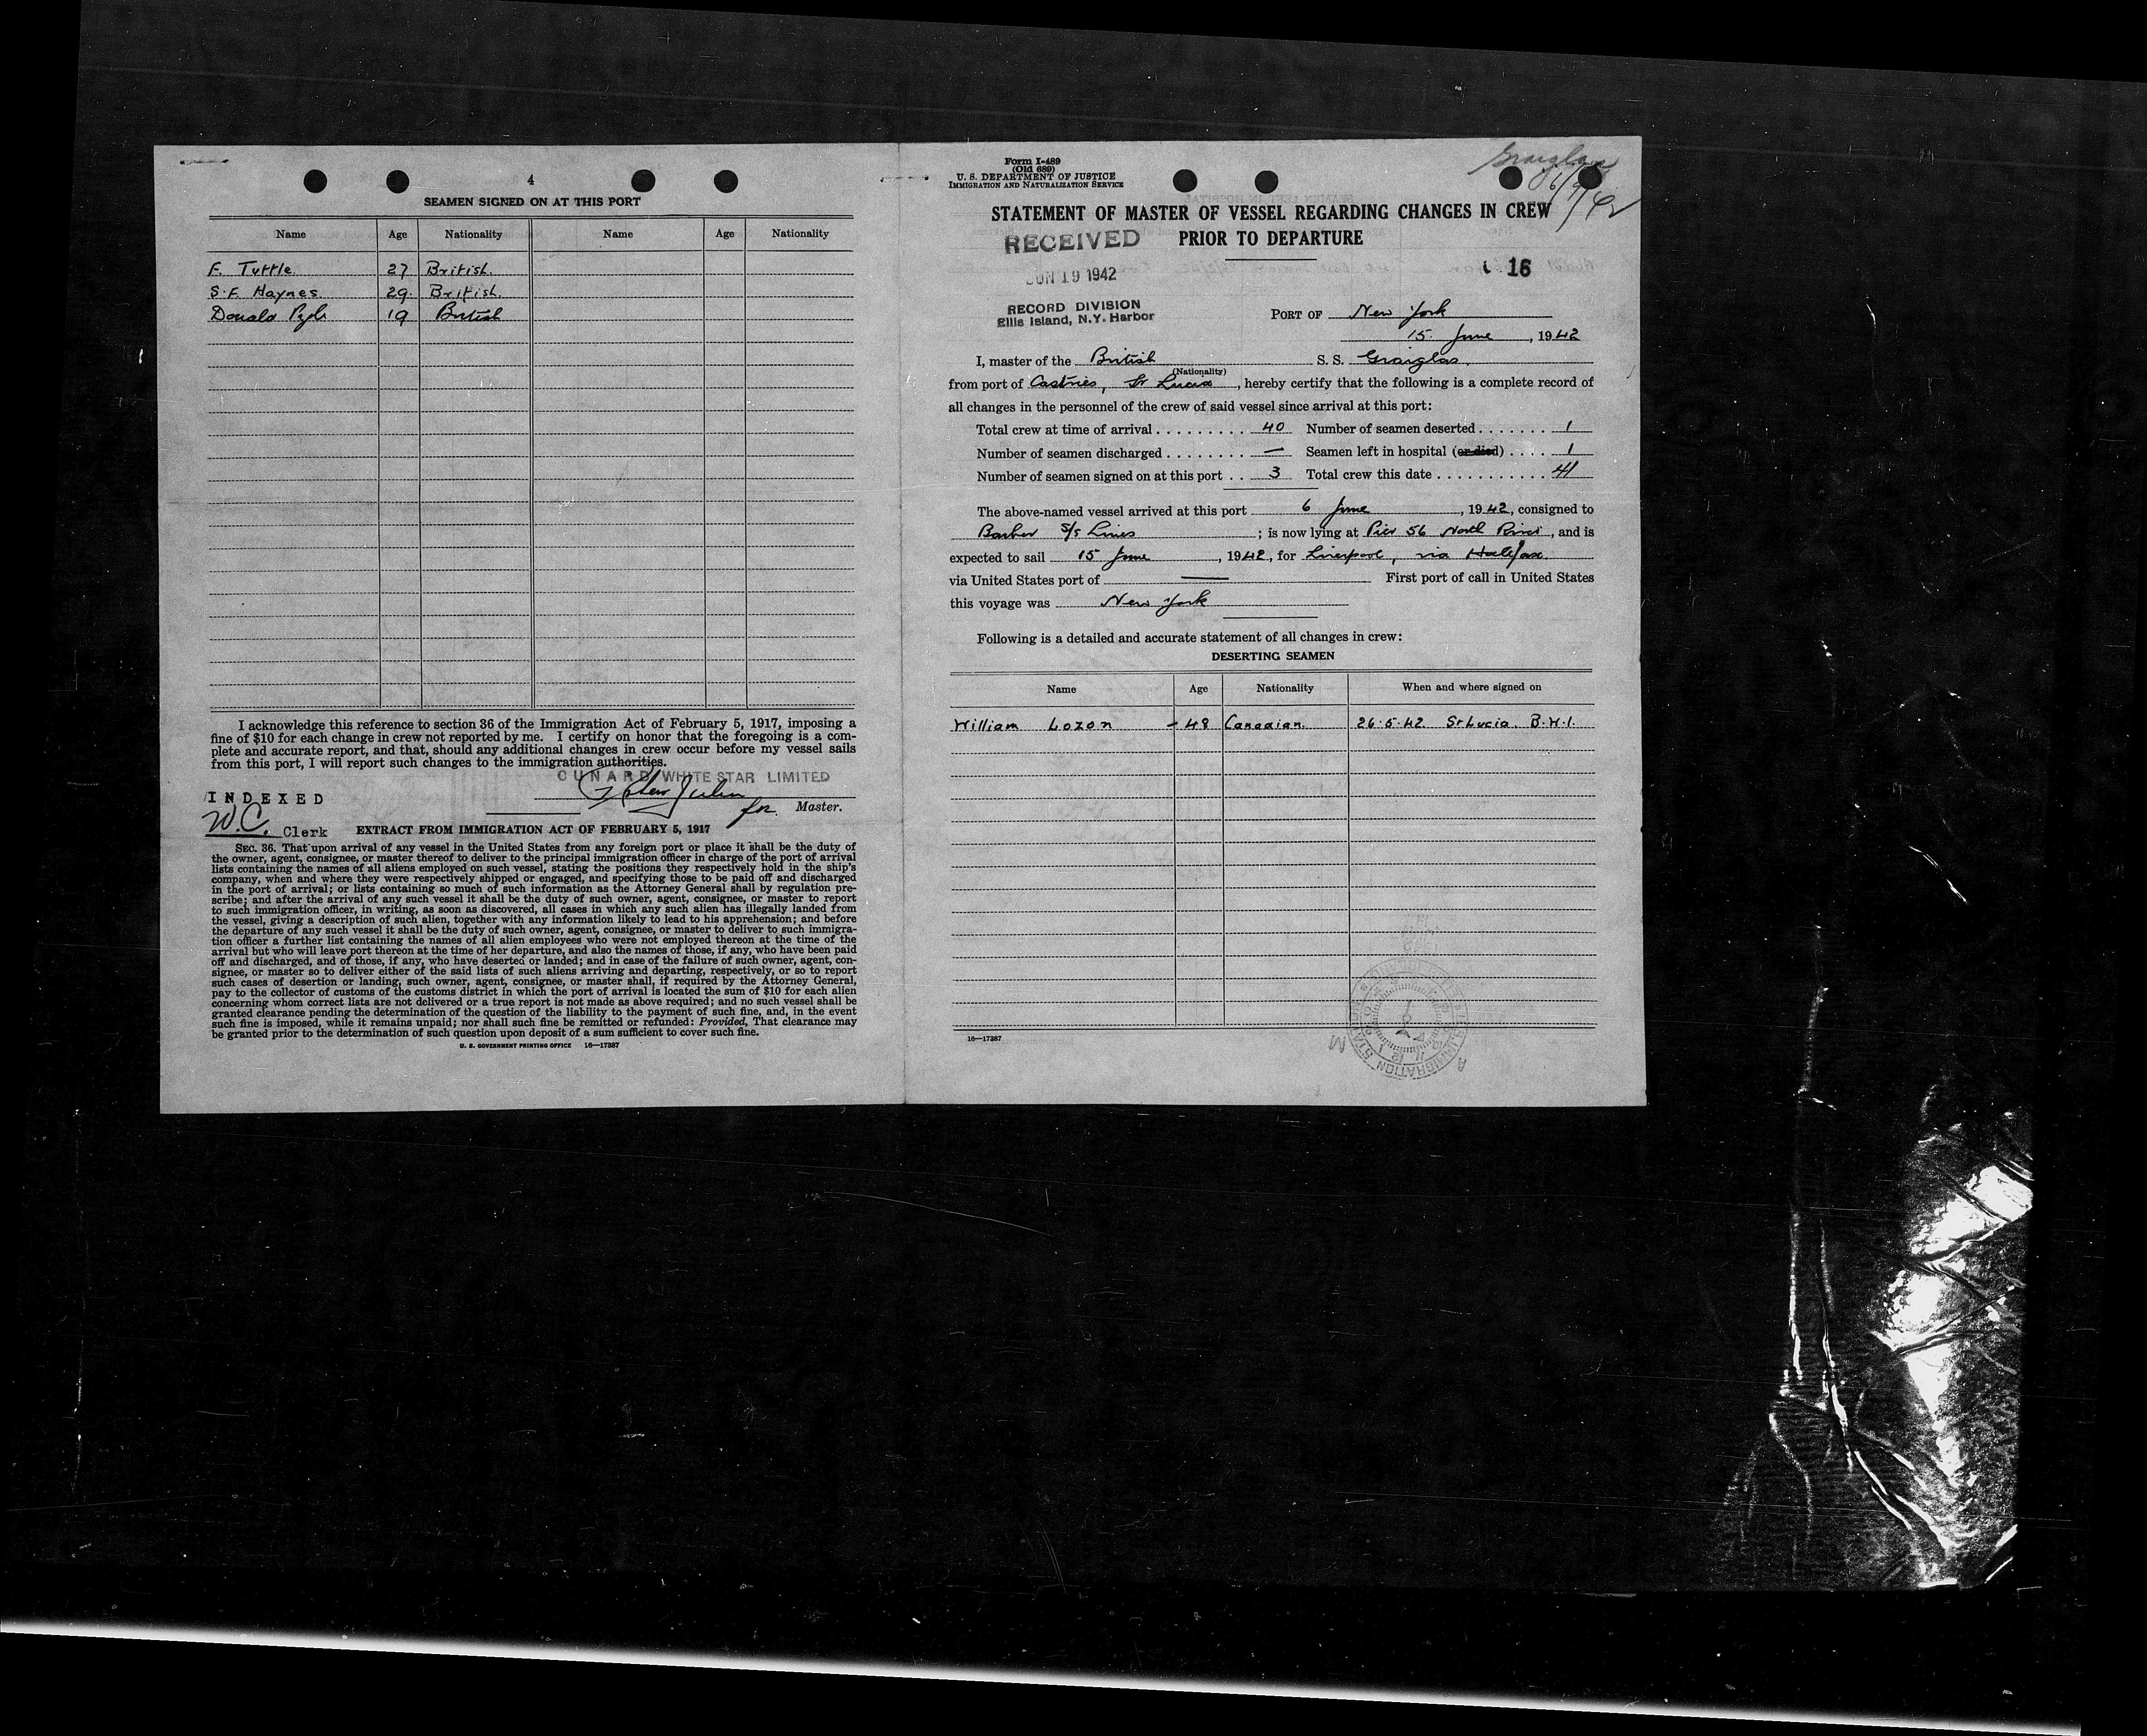 4
SEAMEN SIGNED ON AT THIS PORT
Name Age Nationality Name Age Nationality
F. Tuttle. 27 British.
S.F. Haynes. 29. British.
Donald 19 British
I acknowledge this reference to section 36 of the Immigration Act of February 5, 1917, imposing a
fine of $10 for each change in crew not reported by me. I certify on honor that the foregoing is a com-
plete and accurate report, and that, should any additional changes in crew occur before my vessel sails
from this port, I will report such changes to the immigration authorities.
CUNARD WHITE STAR LIMITED
INDEXED
for Master.
W.C. Clerk
EXTRACT FROM IMMIGRATION ACT OF FEBRUARY 5, 1917
SEC. 36. That upon arrival of any vessel in the United States from any foreign port or place it shall be the duty of
the owner, agent, consignee, or master thereof to deliver to the principal immigration officer in charge of the port of arrival
lists containing the names of all aliens employed on such vessel, stating the positions they respectively hold in the ship's
company, when and where they were respectively shipped or engaged, and specifying those to be paid off and discharged
in the port of arrival; or lists containing so much of such information as the Attorney General shall by regulation pre-
scribe; and after the arrival of any such vessel it shall be the duty of such owner, agent, consignee, or master to report
to such immigration officer, in writing, as soon as discovered, all cases in which any such alien has illegally landed from
the vessel, giving a description of such alien, together with any information likely to lead to his apprehension; and before
the departure of any such vessel it shall be the duty of such owner, agent, consignee, or master to deliver to such immigra-
tion officer a further list containing the names of all alien employees who were not employed thereon at the time of the
arrival but who will leave port thereon at the time of her departure, and also the names of those, if any, who have been paid
off and discharged, and of those, if any, who have deserted or landed; and in case of the failure of such owner, agent, con-
signee, or master so to deliver either of the said lists of such aliens arriving and departing, respectively, or so to report
such cases of desertion or landing, such owner, agent, consignee, or master shall, if required by the Attorney General,
pay to the collector of customs of the customs district in which the port of arrival is located the sum of $10 for each alien
concerning whom correct lists are not delivered or a true report is not made as above required; and no such vessel shall be
granted clearance pending the determination of the question of the liability to the payment of such fine, and, in the event
such fine is imposed, while it remains unpaid; nor shall such fine be remitted or refunded: Provided, That clearance may
be granted prior to the determination of such question upon deposit of a sum sufficient to cover such fine.
U. S. GOVERNMENT PRINTING OFFICE 16—17387
Form I-489
(Old 689)
U. S. DEPARTMENT OF JUSTICE
IMMIGRATION AND NATURALIZATION SERVICE
Graiglas
6/9/42
STATEMENT OF MASTER OF VESSEL REGARDING CHANGES IN CREW
PRIOR TO DEPARTURE
RECEIVED
JUN 19 1942
RECORD DIVISION
Ellis Island, N.Y. Harbor
16
PORT OF New York
15 June, 1942
I, master of the British S. S. Graiglas.
(Nationality)
from port of Castries, St Lucia, hereby certify that the following is a complete record of
all changes in the personnel of the crew of said vessel since arrival at this port:
Total crew at time of arrival . . . . . . . . . 40 Number of seamen deserted . . . . . . . 1
Number of seamen discharged . . . . . . . . — Seamen left in hospital (or died) . . . . 1
Number of seamen signed on at this port . . 3 Total crew this date . . . . . . . . . . . 41
The above-named vessel arrived at this port 6 June, 1942, consigned to
Barber S/S Lines; is now lying at Pier 56 North River, and is
expected to sail 15 June, 1942, for Liverpool, via Halifax
via United States port of — First port of call in United States
this voyage was New York
Following is a detailed and accurate statement of all changes in crew:
DESERTING SEAMEN
Name Age Nationality When and where signed on
William Lozon - 48 Canadian. 26.5.42. St Lucia. B.W.I.
16—17387